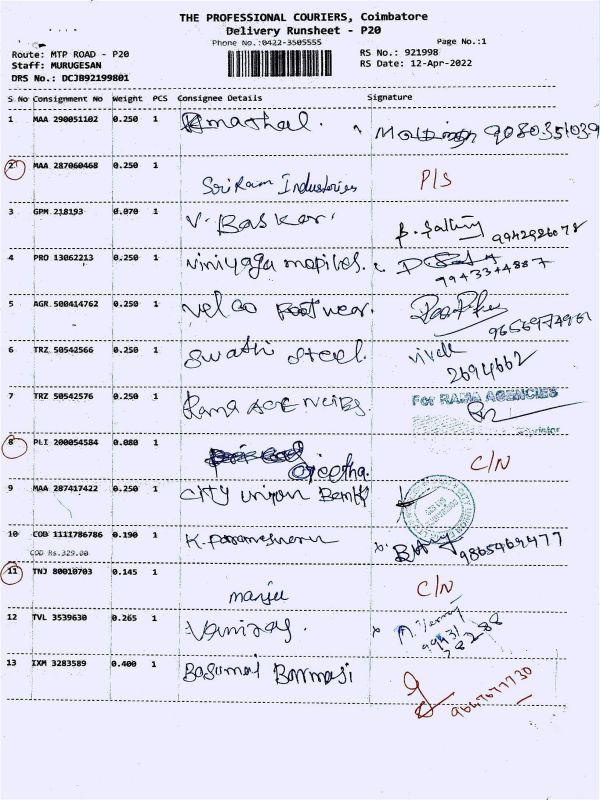 THE PROFESSIONAL COURIERS, Coimbatore
Delivery Runsheet - P20
Phone No.:0422-3505555
Page No.:1
Route: MTP ROAD - P20
RS No.: 921998
Staff: MURUGESAN
RS Date: 12-Apr-2022
DRS No.: DCJB92199801
S No Consignment No Weight PCS Consignee Details Signature
1 MAA 290051102 0.250 1
2 MAA 287060468 0.250 1 Sri Ram Industries P/S
3 GPM 218193 0.070 1 V. Baskar.
4 PRO 13062213 0.250 1 Viniyaga 9943344887
5 AGR 500414762 0.250 1 Velco Footwear.
6 TRZ 50542566 0.250 1 Swathi Steel. 2694662
7 TRZ 50542576 0.250 1 Rama AGENCIES For RAMA AGENCIES
8 PLI 200054584 0.080 1 Geetha. C/N
9 MAA 287417422 0.250 1 City Union Bank
10 COD 1111786786 0.190 1 K.
COD Rs.329.00
11 TNJ 80010703 0.145 1 manju C/N
12 TVL 3539630 0.265 1
13 IXM 3283589 0.400 1